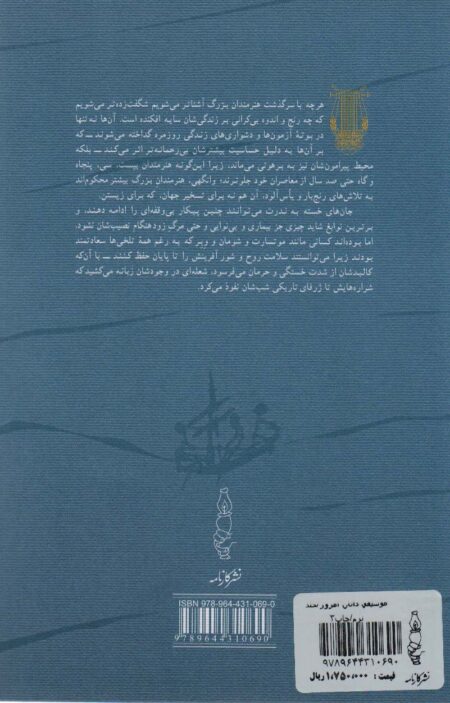 هرچه با سرگذشت هنرمندان بزرگ آشناتر می‌شویم شگفت‌زده‌تر می‌شویم
که چه رنج و اندوه بی‌کرانی بر زندگی‌شان سایه افکنده است. آن‌ها نه تنها
در بوتهٔ آزمون‌ها و دشواری‌های زندگی روزمره گداخته می‌شوند ــ که
بر آن‌ها به دلیل حساسیت بیشترشان بی‌رحمانه‌تر اثر می‌کند ــ بلکه
محیط پیرامون‌شان نیز به برهوتی می‌ماند، زیرا این‌گونه هنرمندان بیست، سی، پنجاه
و گاه حتی صد سال از معاصران خود جلوترند؛ وانگهی، هنرمندان بزرگ بیشتر محکوم‌اند
به تلاش‌های رنج‌بار و یأس‌آلود، آن هم نه برای تسخیر جهان، که برای زیستن.
جان‌های خسته به ندرت می‌توانند چنین پیکار بی‌وقفه‌ای را ادامه دهند، و
برترین نوابغ شاید چیزی جز بیماری و بی‌نوایی و حتی مرگ زودهنگام نصیب‌شان نشود.
اما بوده‌اند کسانی مانند موتسارت و شومان و وبر که به رغم همهٔ تلخی‌ها سعادتمند
بودند زیرا می‌توانستند سلامت روح و شور آفرینش را تا پایان حفظ کنند ــ با آن‌که
کالبدشان از شدت خستگی و حرمان می‌فرسود، شعله‌ای در وجودشان زبانه می‌کشید که
شراره‌هایش تا ژرفای تاریکی شب‌شان نفوذ می‌کرد.
نشر کارنامه
ISBN 978-964-431-069-0
9789644310690
نرم/چاپ۳
۹۷۸۹۶۴۴۳۱۰۶۹۰
نشر کارنامه
قیمت: ۱،۷۵۰،۰۰۰ ریال